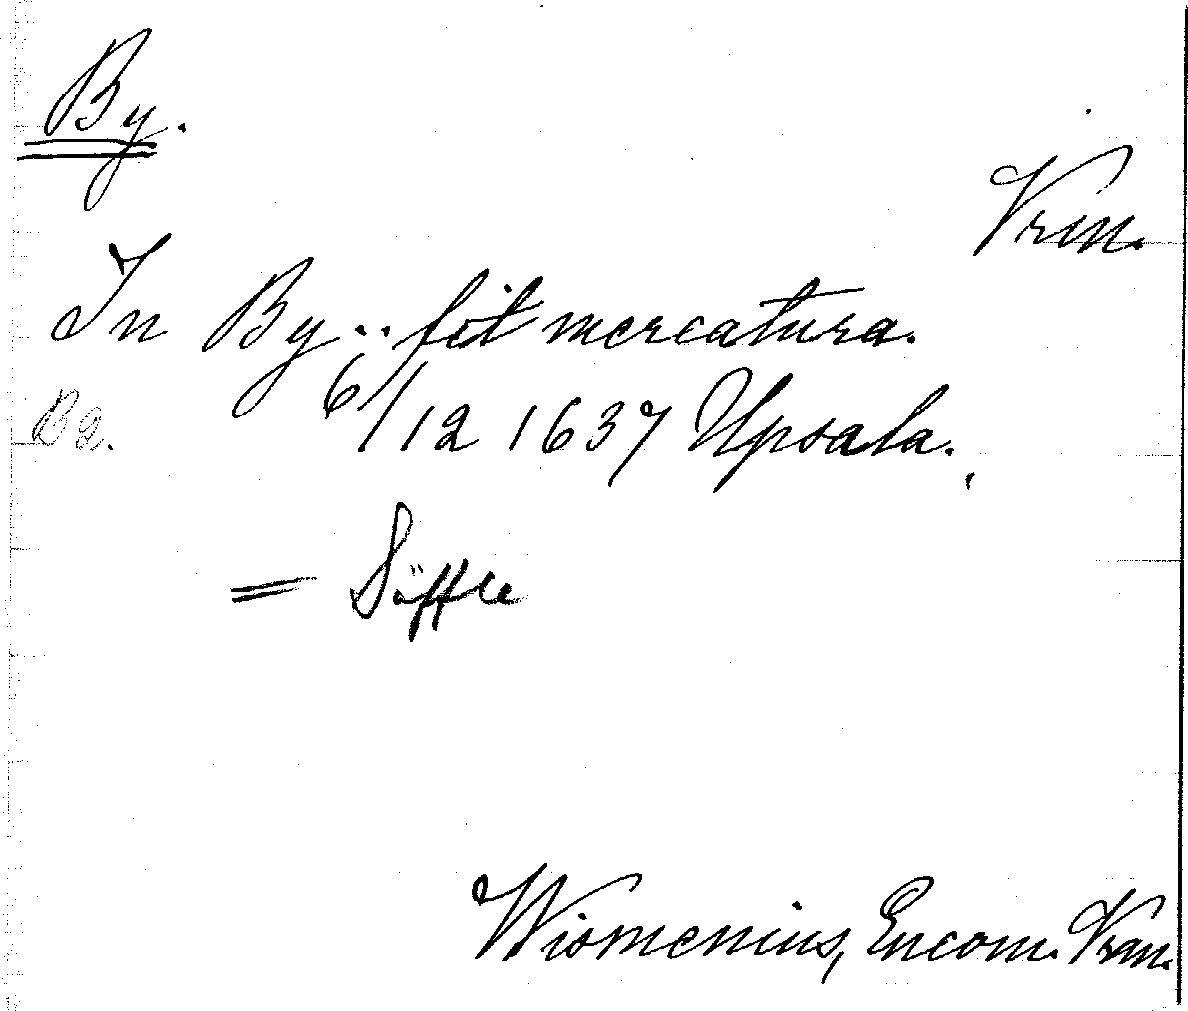 By.
Vrm.
In By .. fit mercatura.
B2. 6/12 1637 Upsala.
= Säffle
Wismenius, Encom. Vrm.